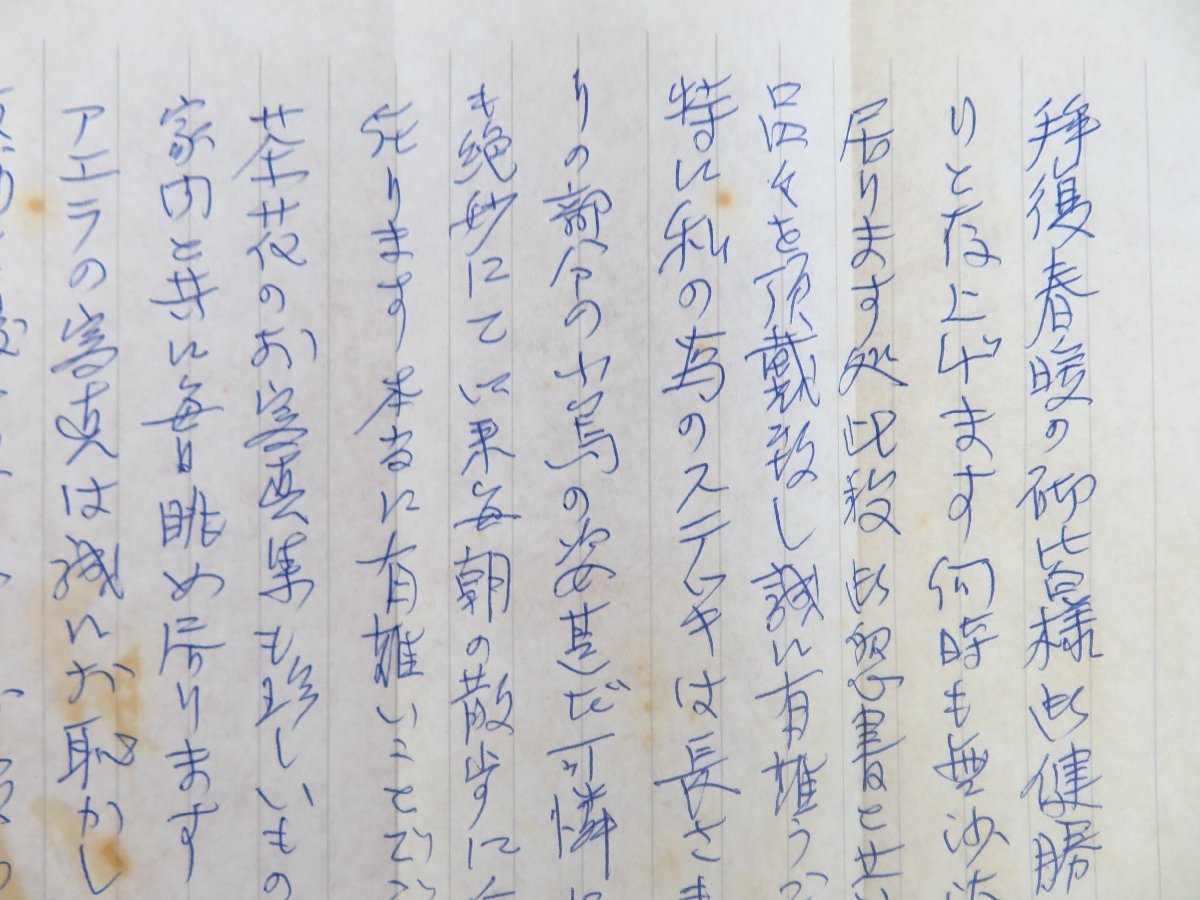 拝復春暖の砌皆様御健勝
りと存上げます何時も無沙汰
居ります処此段御懇書と共
品々を頂戴致し誠に有難う
特に私の為のステッキは長さ
りの部分の小鳥の姿甚だ可憐
も絶妙にて以来毎朝の散歩に
居ります本当に有難いことで
茶花のお写真集も珍しいもの
家内と共に毎日眺め居ります
アエラの写真は誠にお恥かし